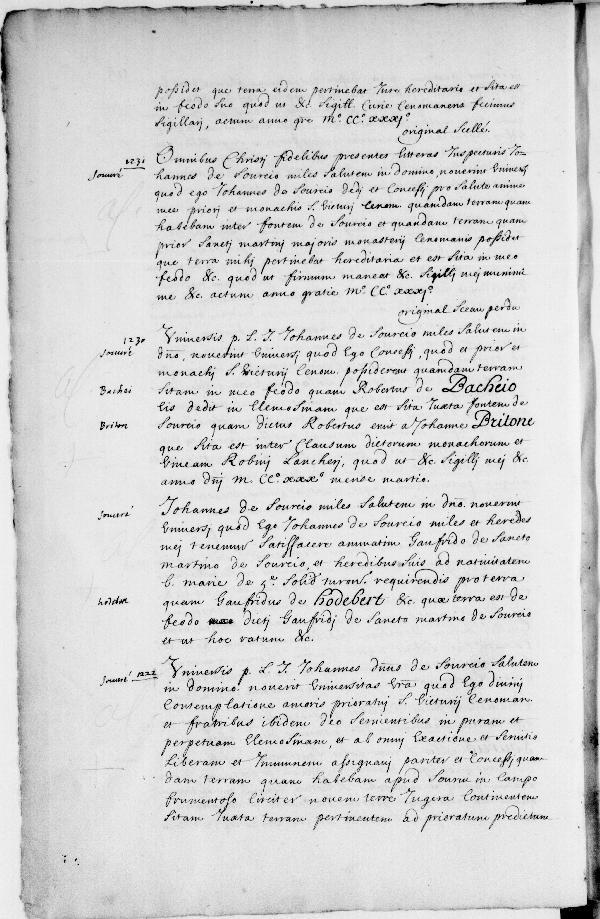 possidet que terra eidem pertinebat Jure hereditario et sita est
in feodo suo quod ut &c. Sigill. Curie Cenomanens fecimus
Sigillarj, actum anno gre Mº. CCº. xxxjº.
original Scellé.
1231
Souvré
Omnibus Christj fidelibus presentes litteras Inspecturis Jo-
hannes de Sourcio miles Salutem in domino, noverint Universj
quod ego Johannes de Sourcio dedj et Concessj pro Salute anime
mee priorj et monachis S. Victurj Cenom. quamdam terram quam
habebam inter fontem de Sourcio et quandam terram quam
prior Sanctj martinj majoris monasterij Cenomanis possidet
que terra mihj pertinebat hereditaria et est Sita in meo
feodo &c. quod ut firmum maneat &c. Sigillj mej munimi
ne &c. actum anno gratie Mº. CCº. xxxjº.
original Sceau perdu
1230
Souvré
Universis p. L. J. Johannes de Sourcio miles Salutem in
dño, noverint Universj quod Ego Concessj, quod et prior et
monachj S. Victurij Cenom. possiderent quamdam terram
Bachei
Sitam in meo feodo quam Robertus de Bacheio
eis dedit in Elemosinam que est Sita Juxta fontem de
Briton
Sourcio quam dictus Robertus emit a Johanne Britone
que Sita est inter Clausum dictorum monachorum et
Vineam Robinj Lancherj, quod ut &c. Sigillj mej &c.
anno dñj M. CCº. xxxº. mense martio.
Souvré
Johannes de Sourcio miles Salutem in dño. noverint
Universj quod Ego Johannes de Sourcio miles et heredes
mej tenemur Satisfacere annuatim Gaufrido de Sancto
martino de Sourcio, et heredibus Suis ad nativitatem
b. marie de Solid turons. requirendis pro terra
hodebert
quam Gaufridus de hodebert &c. quæ terra est de
feodo dictj Gaufridj de Sancto martino de Sourcio
et ut hoc ratum &c.
Souvré 1222
Universis p. L. J. Johannes dñus de Sourcio Salutem
in domino. noverit Universitas Vra quod Ego divinj
Contemplatione amoris prioratuj S. Victurij Cenoman.
et fratribus ibidem deo Servientibus in puram et
perpetuam Elemosinam, et ab omnj Exactione et Servitio
Liberam et Immunem assignavj pariter et Concessj quan
dam terram quam habebam apud Sourcio in Campo
frumentoso Circiter novem terre Jugera Continentem
Sitam Juxta terram pertinentem ad prioratum predictum